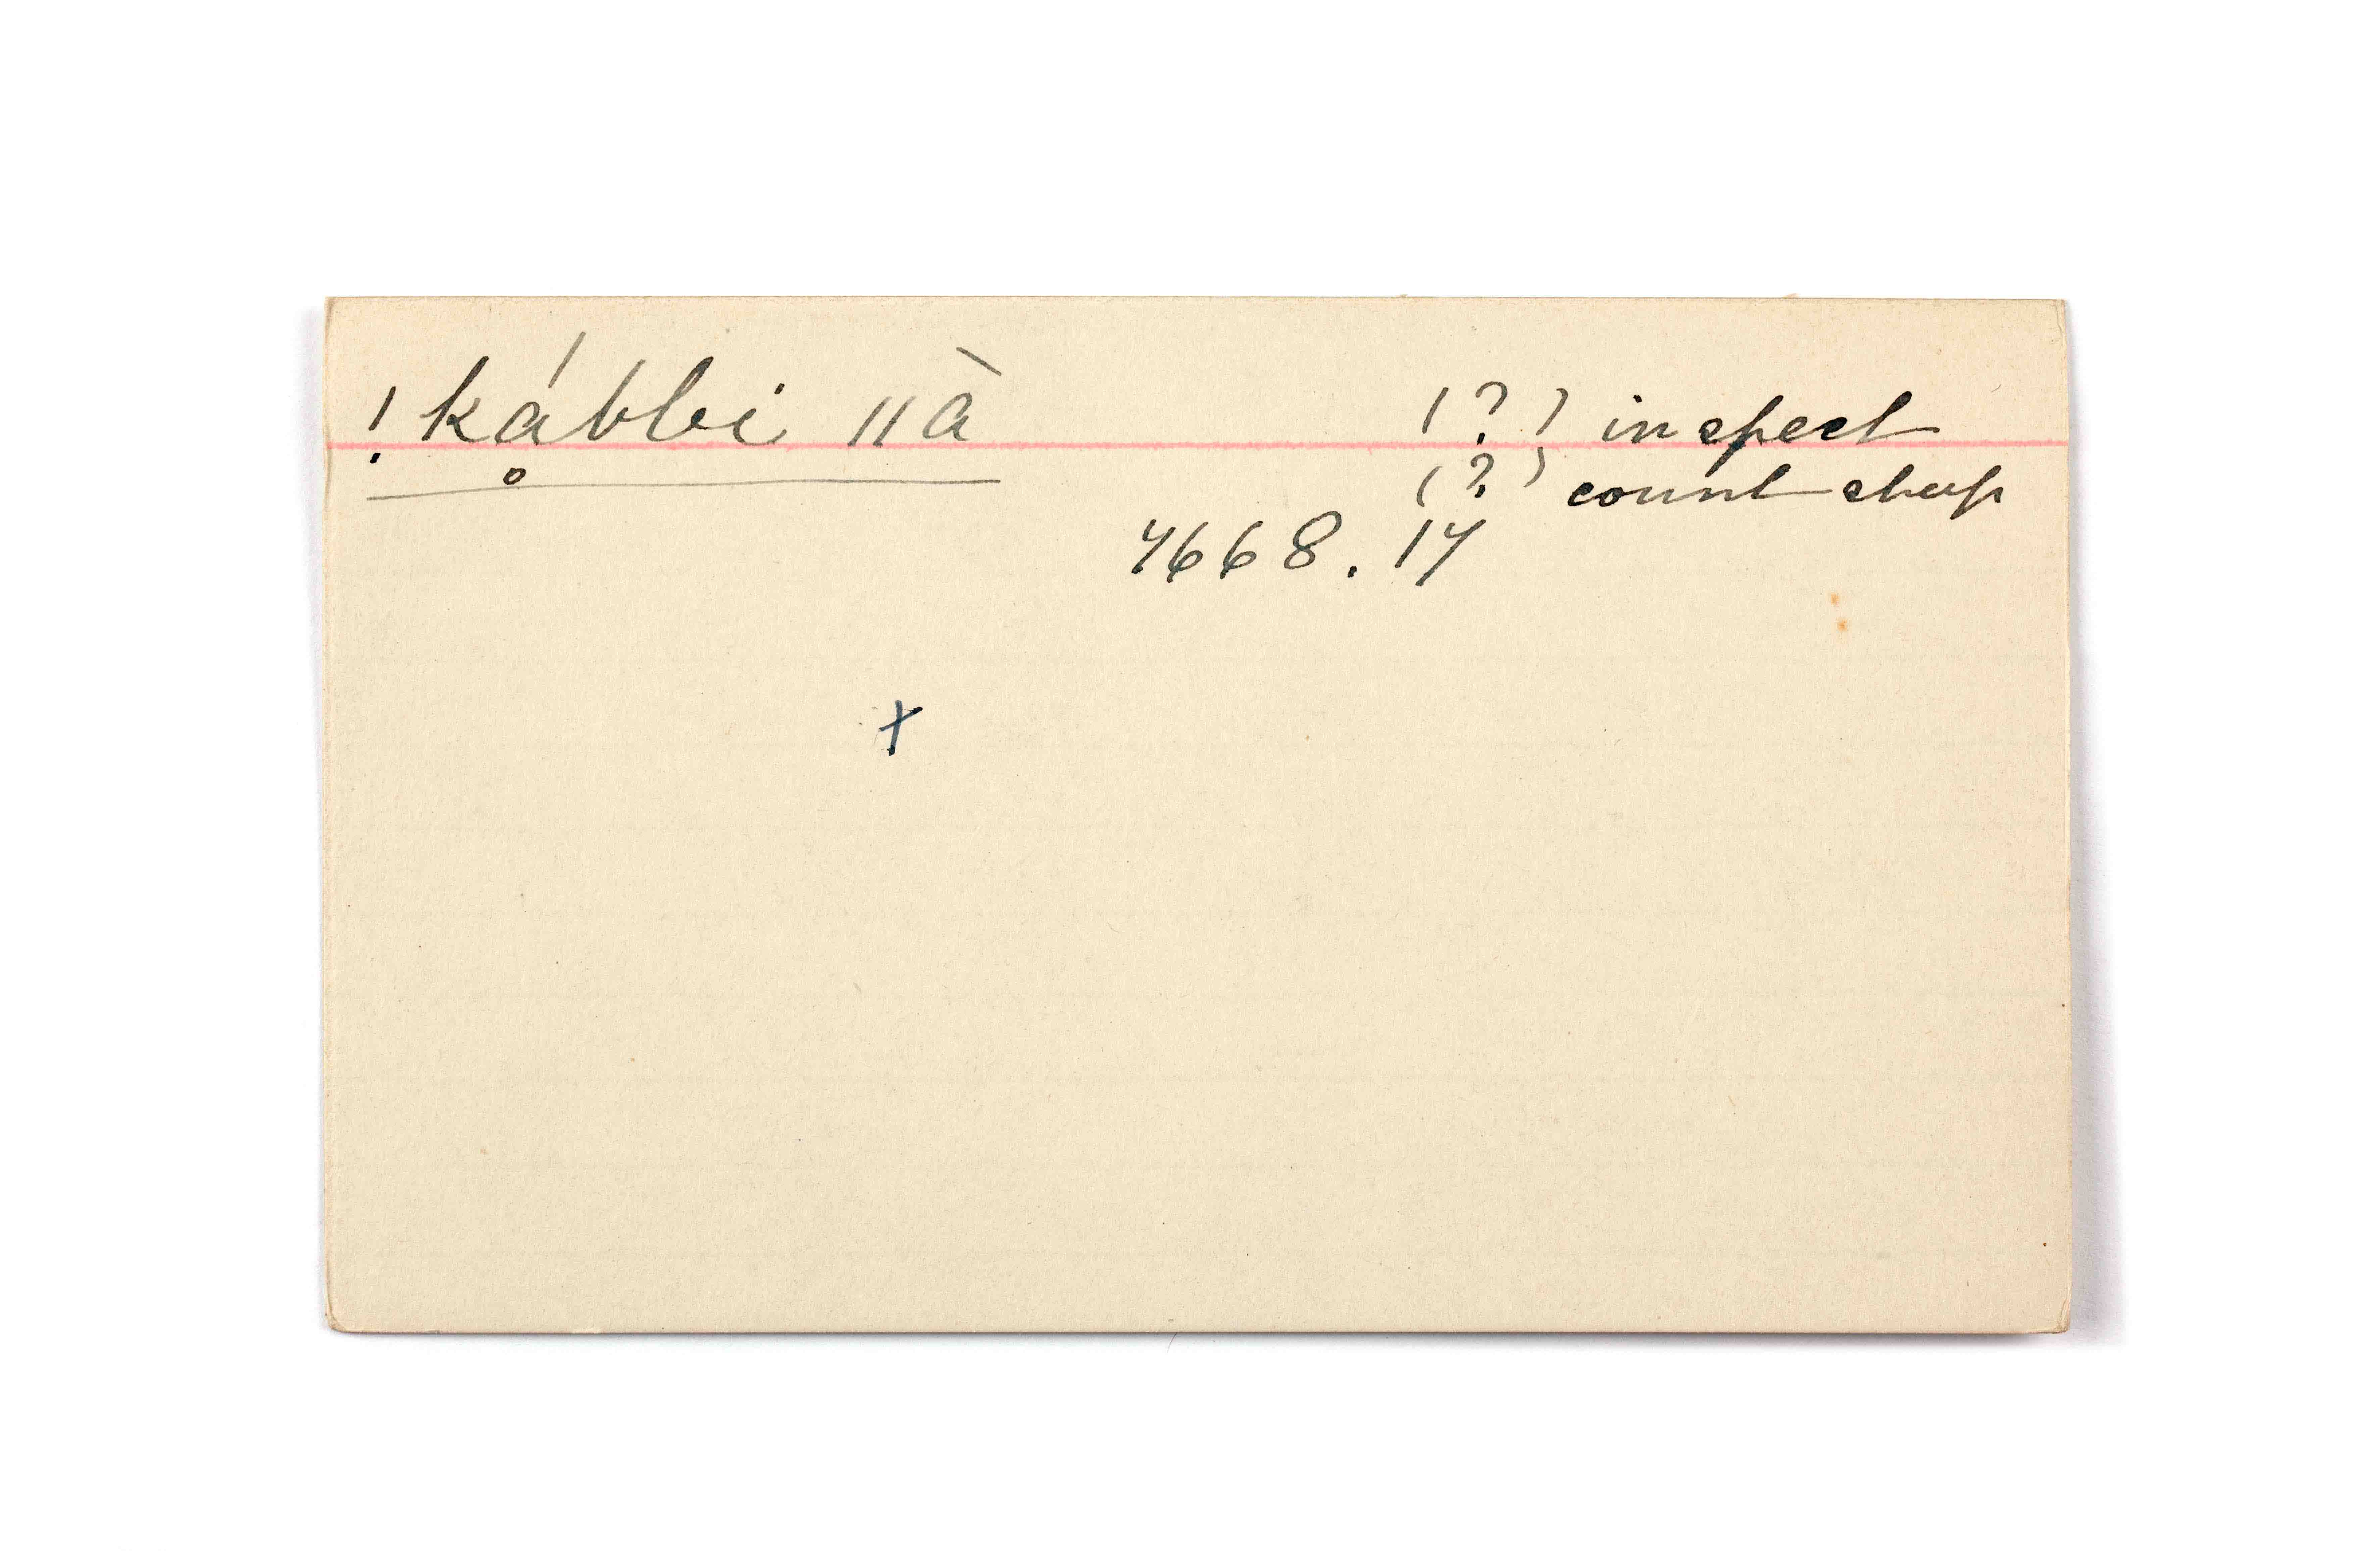 !kḁ́bbi ǁà (?) inspect
(?) count sheep
7668.17
x